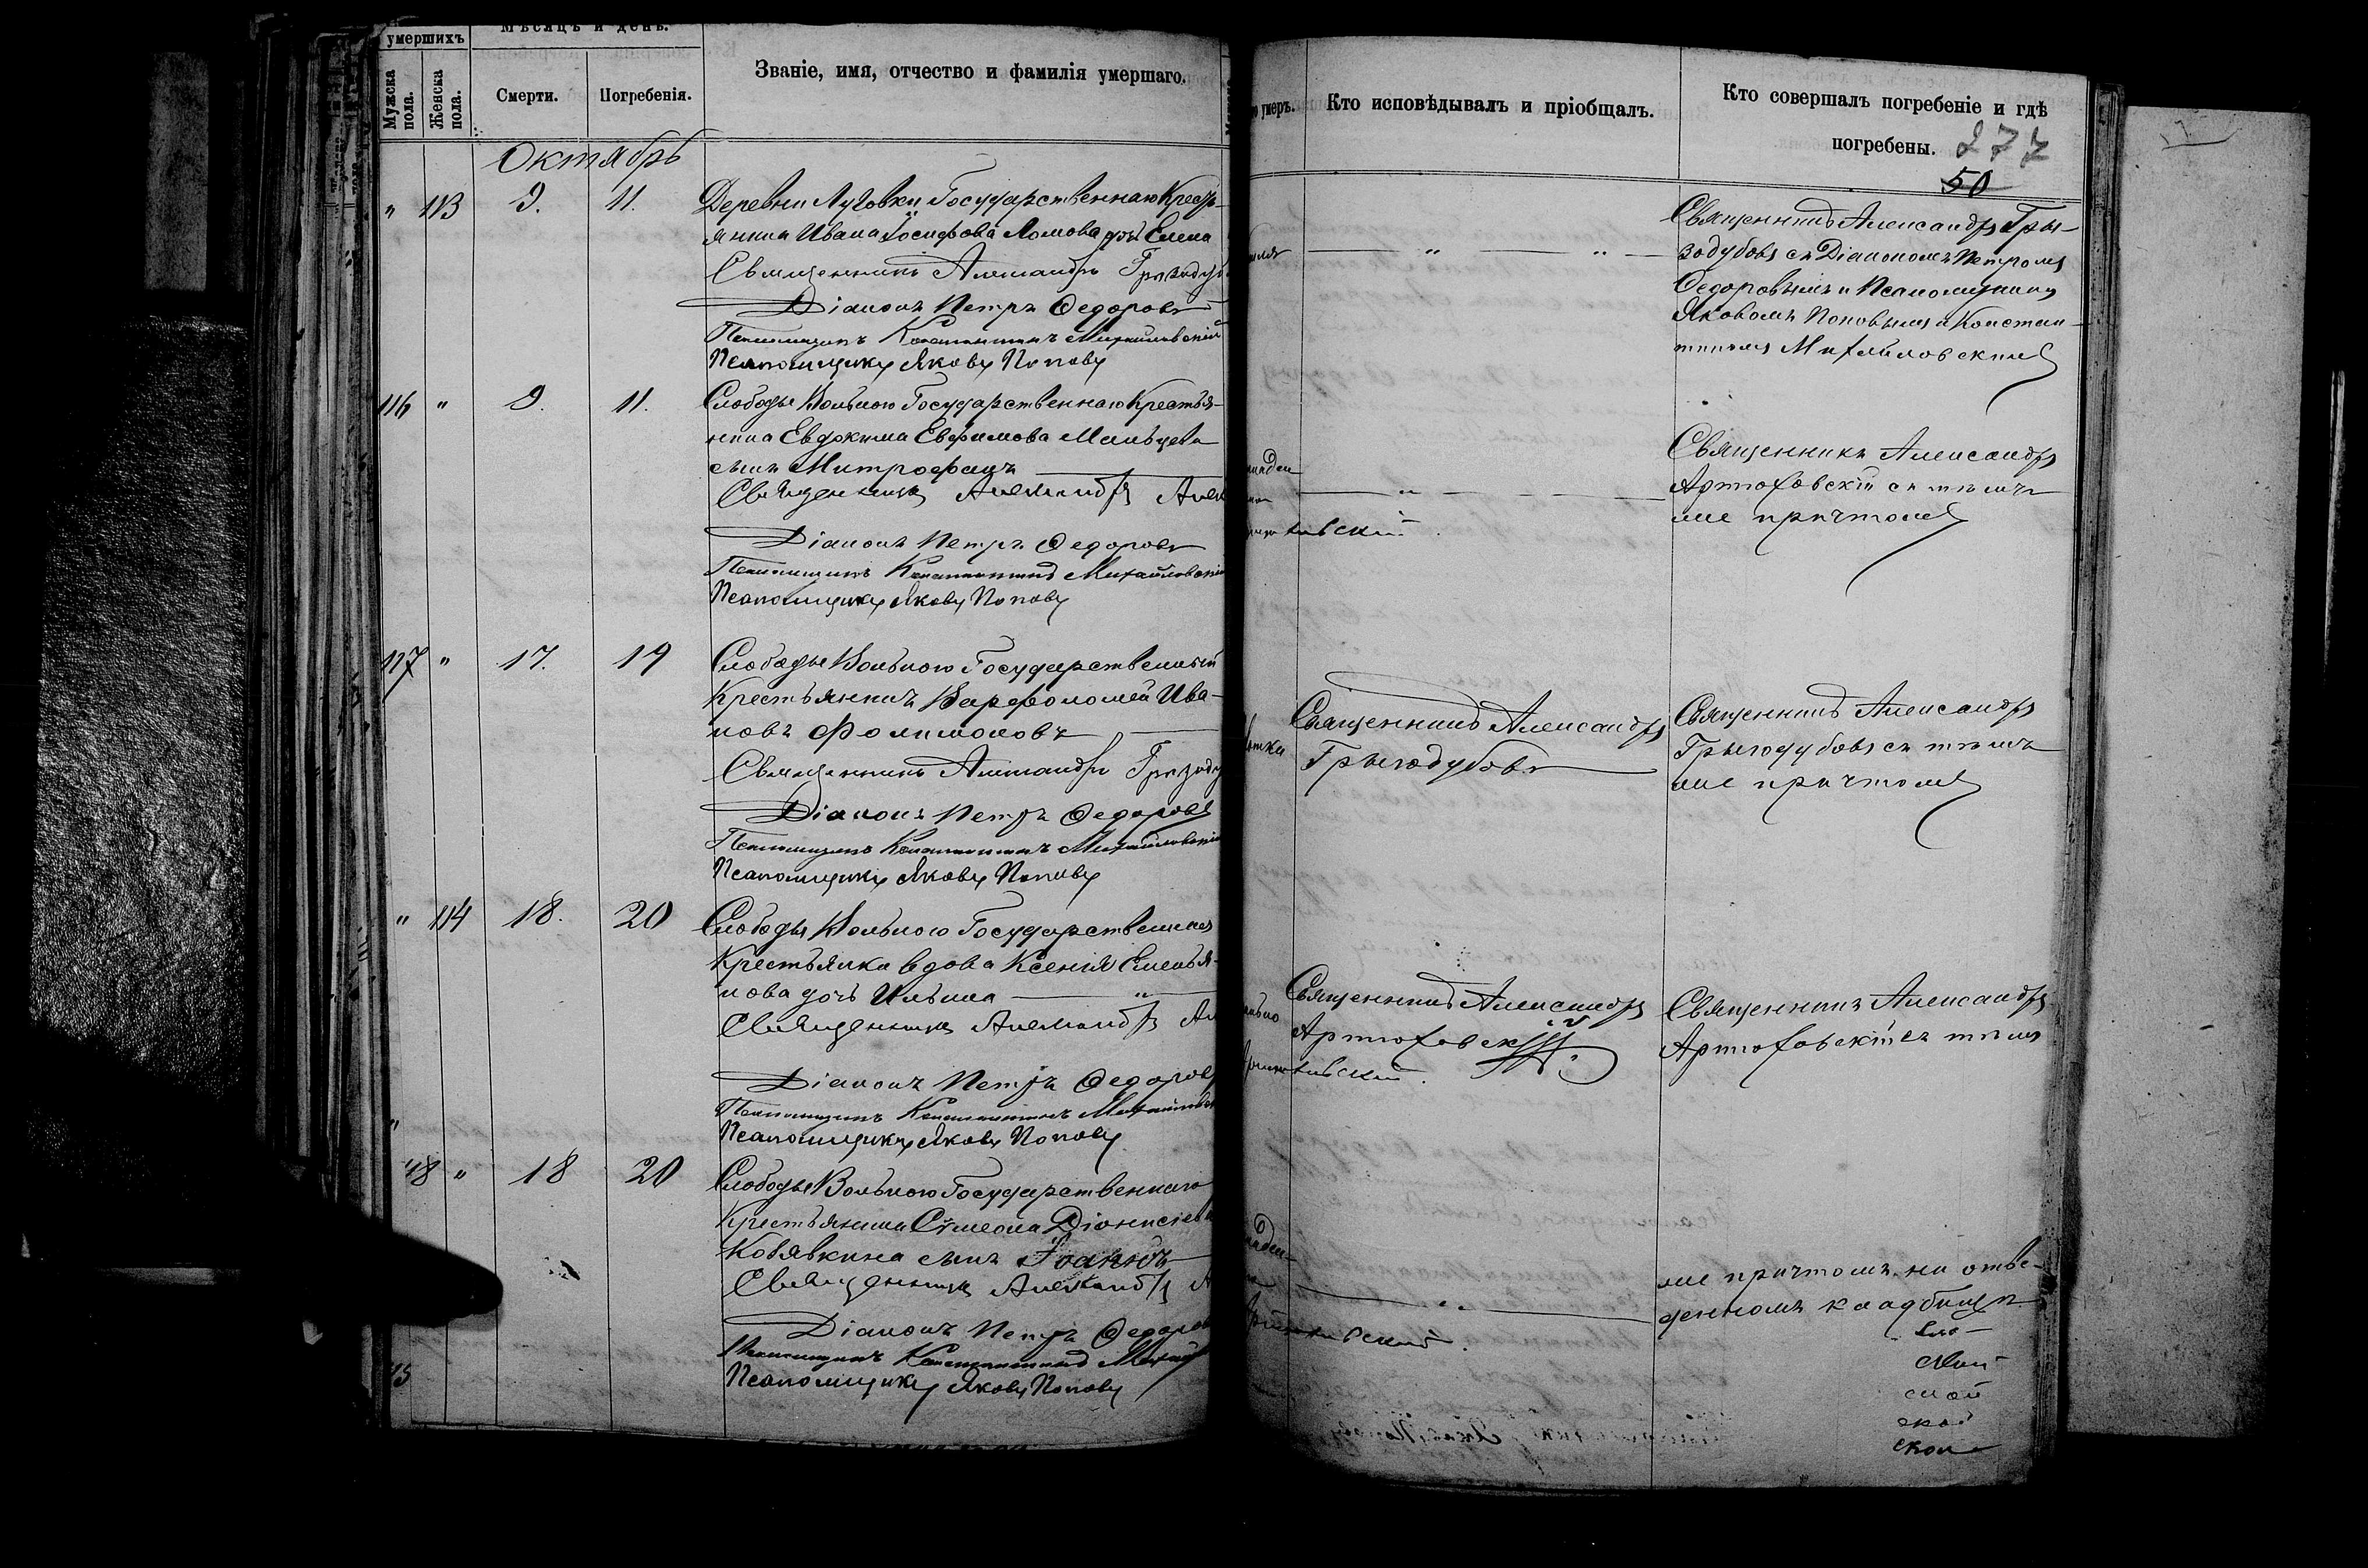 умершихъ
Мѣсяцъ и день.
Мужска пола.
Женска пола.
Смерти.
Погребенія.
Званіе, имя, отчество и фамилія умершаго.
Октябрь
" 113 9. 11.
Деревни Луговки Государственнаго Кресть-
янина Ивана Іосифова Ломова дочь Елена
Священникъ Александръ
Діаконъ Петръ Ѳедоровъ
Псаломщикъ Константинъ Михайловскій
Псаломщикъ Яковъ Поповъ
116 " 9. 11.
Слободы Вольного Государственнаго Крестья-
нина Евдокима Евфимова Мальцева
сынъ Митрофанъ
Священникъ Александръ
Діаконъ Петръ Ѳедоровъ
Псаломщикъ Константинъ Михайловскій
Псаломщикъ Яковъ Поповъ
117 " 17. 19
Слободы Вольного Государственный
Крестьянинъ Варфоломей Ива-
новъ Филимоновъ
Священникъ Александръ
Діаконъ Петръ Ѳедоровъ
Псаломщикъ Константинъ Михайловскій
Псаломщикъ Яковъ Поповъ
" 114 18. 20
Слободы Вольного Государственная
Крестьянка вдова Ксенія Емелья-
нова дочь Ильина
Священникъ Александръ
Діаконъ Петръ Ѳедоровъ
Псаломщикъ Константинъ
Псаломщикъ Яковъ Поповъ
118 " 18 20
Слободы Вольного Государственнаго
Крестьянина Сѵмеона Діонисіева
Ковявкина сынъ Іоаннъ
Священникъ Александръ
Діаконъ Петръ Ѳедоровъ
Псаломщикъ Константинъ
Псаломщикъ Яковъ Поповъ
умеръ.
Кто исповѣдывалъ и пріобщалъ.
Священникъ Александръ
Грызодубовъ
Священникъ Александръ
Артюховскій.
Кто совершалъ погребеніе и гдѣ
погребены.
277
50
Священникъ Александръ Гры-
зодубовъ съ Діакономъ Петромъ
Ѳедоровымъ и Псаломщиками
Яковомъ Поповымъ и Констан-
тиномъ Михайловскимъ
Священникъ Александръ
Артюховскій съ тѣмъ
же причтомъ
Священникъ Александръ
Грызодубовъ съ тѣмъ
же причтомъ
Священникъ Александръ
Артюховскій съ тѣмъ
же причтомъ на отве-
денномъ кладбищѣ.
ской